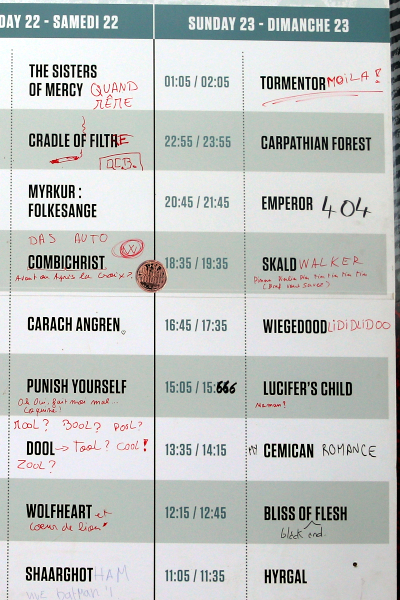 DAY 22 - SAMEDI 22
SUNDAY 23 - DIMANCHE 23
THE SISTERS
OF MERCY QUAND
MÊME
01:05 / 02:05
TORMENTOR MOILA !
CRADLE OF FILTRE
DEB.
22:55 / 23:55
CARPATHIAN FOREST
MYRKUR :
FOLKESANGE
20:45 / 21:45
EMPEROR 404
DAS AUTO
VW
COMBICHRIST
Avant ou Après la Croix?
18:35 / 19:35
SKALD WALKER
CARACH ANGREN
16:45 / 17:35
WIEGEDOOD LiDiDLiDOO
PUNISH YOURSELF
Oh Oui, fait moi mal...
Coquine!
15:05 / 15:666
LUCIFER'S CHILD
Maman!
MOOL? BOOL? POOL?
DOOL → TOOL? COOL!
ZOOL?
13:35 / 14:15
MY CEMICAN ROMANCE
WOLFHEART et
coeur de lion
12:15 / 12:45
BLISS OF FLESH
black end
SHAARGHOT HAM
11:05 / 11:35
HYRGAL